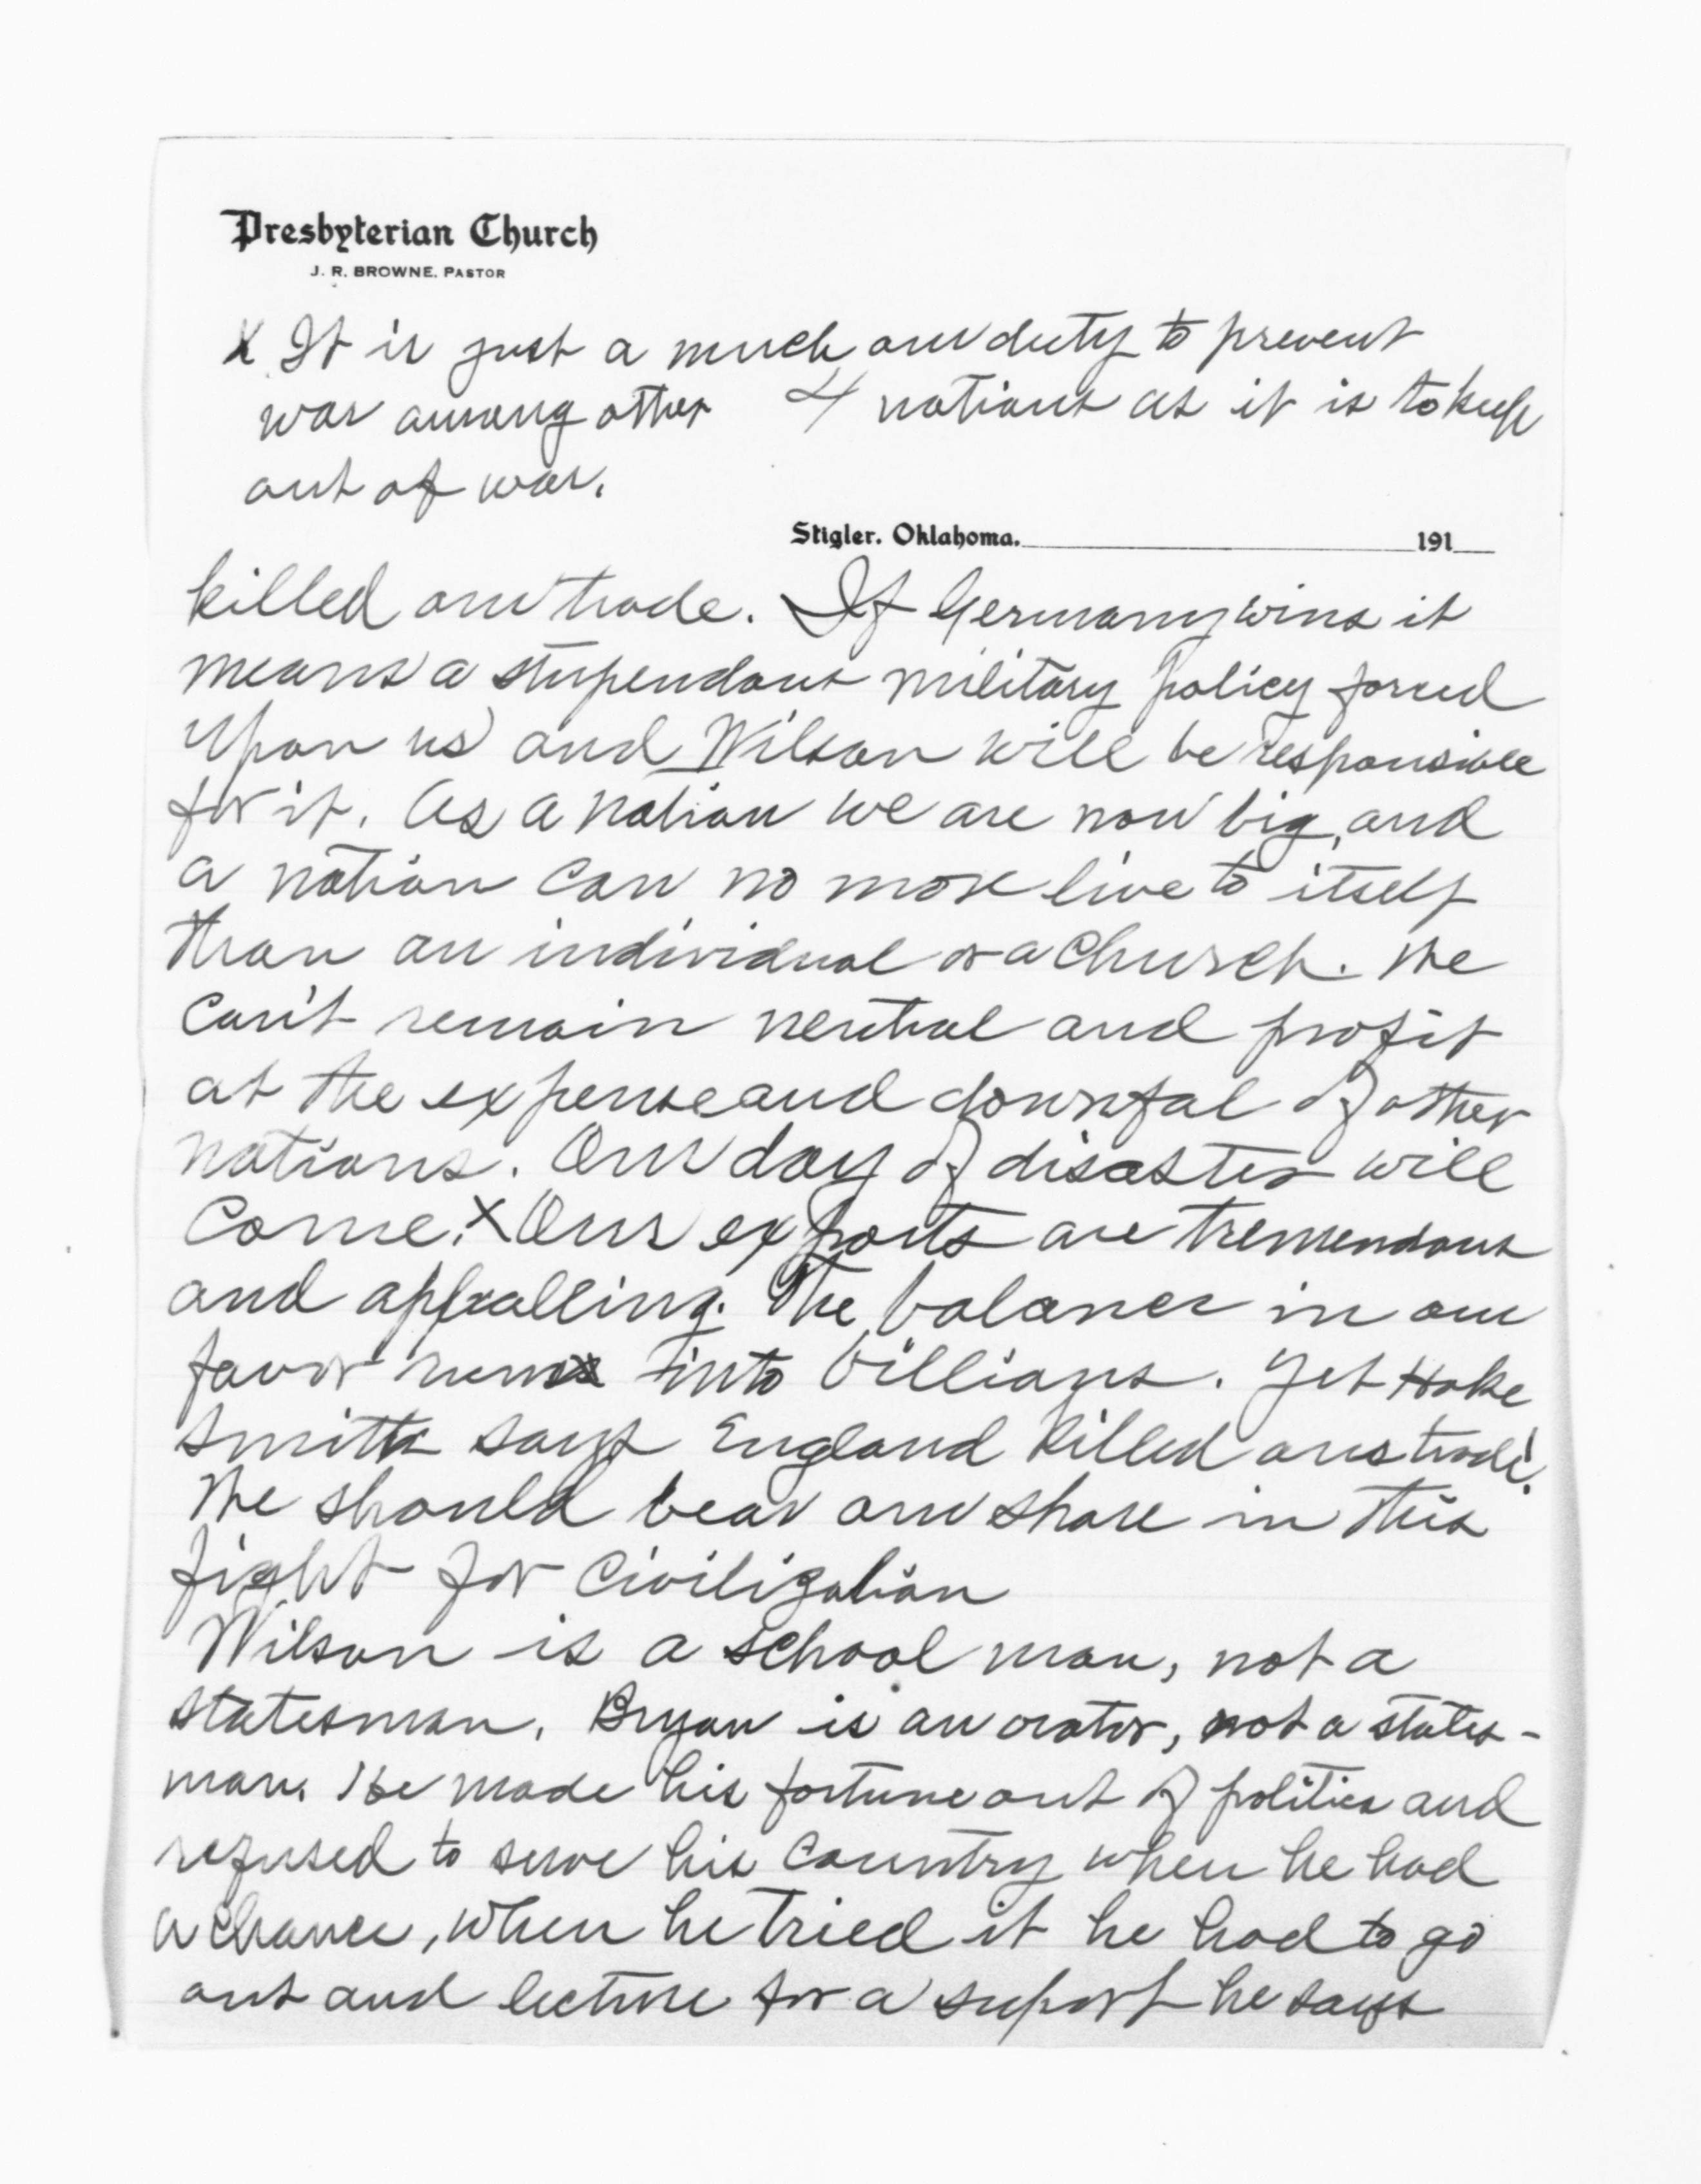 Presbyterian Church
J. R. BROWNE, PASTOR
X It is just a much our duty to prevent
war among other 4 nations as it is to keep
out of war.
Stigler, Oklahoma. 191
killed our trade. If Germany wins it
means a stupendous military policy forced
upon us and Wilson will be responsible
for it. As a nation we are now big, and
a nation can no more live to itself
than an individual or a church. We
can't remain neutral and profit
at the expense and downfal of other
nations. Our day of disaster will
come. X Our exports are tremendous
and appralling. The balance in our
favor runs into billions. Yet Hoke
Smith says England killed our trade!
We should bear our share in this
fight for civilization
Wilson is a school man, not a
statesman. Bryan is an orator, not a states-
man. He made his fortune out of politics and
refused to serve his country when he had
a chance, when he tried it he had to go
out and lecture for a suport he says